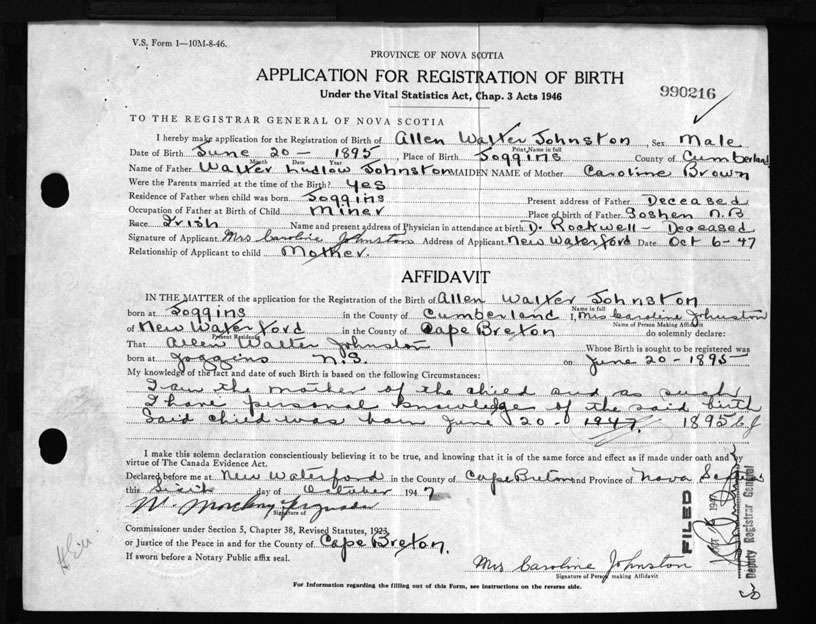 V.S. Form 1—10M-8-46.
PROVINCE OF NOVA SCOTIA
APPLICATION FOR REGISTRATION OF BIRTH
Under the Vital Statistics Act, Chap. 3 Acts 1946
990216
TO THE REGISTRAR GENERAL OF NOVA SCOTIA
I hereby make application for the Registration of Birth of Allen Walter Johnston, Sex Male
Print Name in full
Date of Birth June 20 - 1895, Place of Birth Joggins County of Cumberland
Month Date Year
Name of Father Walter Ludlow Johnston MAIDEN NAME of Mother Caroline Brown
Were the Parents married at the time of the Birth? Yes
Residence of Father when child was born Joggins Present address of Father Deceased
Occupation of Father at Birth of Child Miner Place of birth of Father Goshen N.B
Race Irish Name and present address of Physician in attendance at birth D. Rockwell - Deceased
Signature of Applicant Mrs Caroline Johnston Address of Applicant New Waterford Date Oct 6-47
Relationship of Applicant to child Mother.
AFFIDAVIT
IN THE MATTER of the application for the Registration of the Birth of Allen Walter Johnston
Name in full
born at Joggins in the County of Cumberland I, Mrs Caroline Johnston
Name of Person Making Affidavit
of New Waterford in the County of Cape Breton do solemnly declare:
Present Residence
That Allen Walter Johnston Whose Birth is sought to be registered was
born at Joggins N.S. on June 20-1895-
My knowledge of the fact and date of such Birth is based on the following Circumstances:
I am the mother of the child and as such
I have personal knowledge of the said birth
Said child was born June 20- 1947. 1895 CJ
I make this solemn declaration conscientiously believing it to be true, and knowing that it is of the same force and effect as if made under oath and by
virtue of The Canada Evidence Act.
Declared before me at New Waterford in the County of Cape Breton and Province of Nova Scotia
this Sixth day of October 1947
Signature of
Commissioner under Section 5, Chapter 38, Revised Statutes, 1923,
or Justice of the Peace in and for the County of Cape Breton.
If sworn before a Notary Public affix seal.
Mrs Caroline Johnston
Signature of Person making Affidavit
For Information regarding the filling out of this Form, see instructions on the reverse side.
FILED
Deputy Registrar General